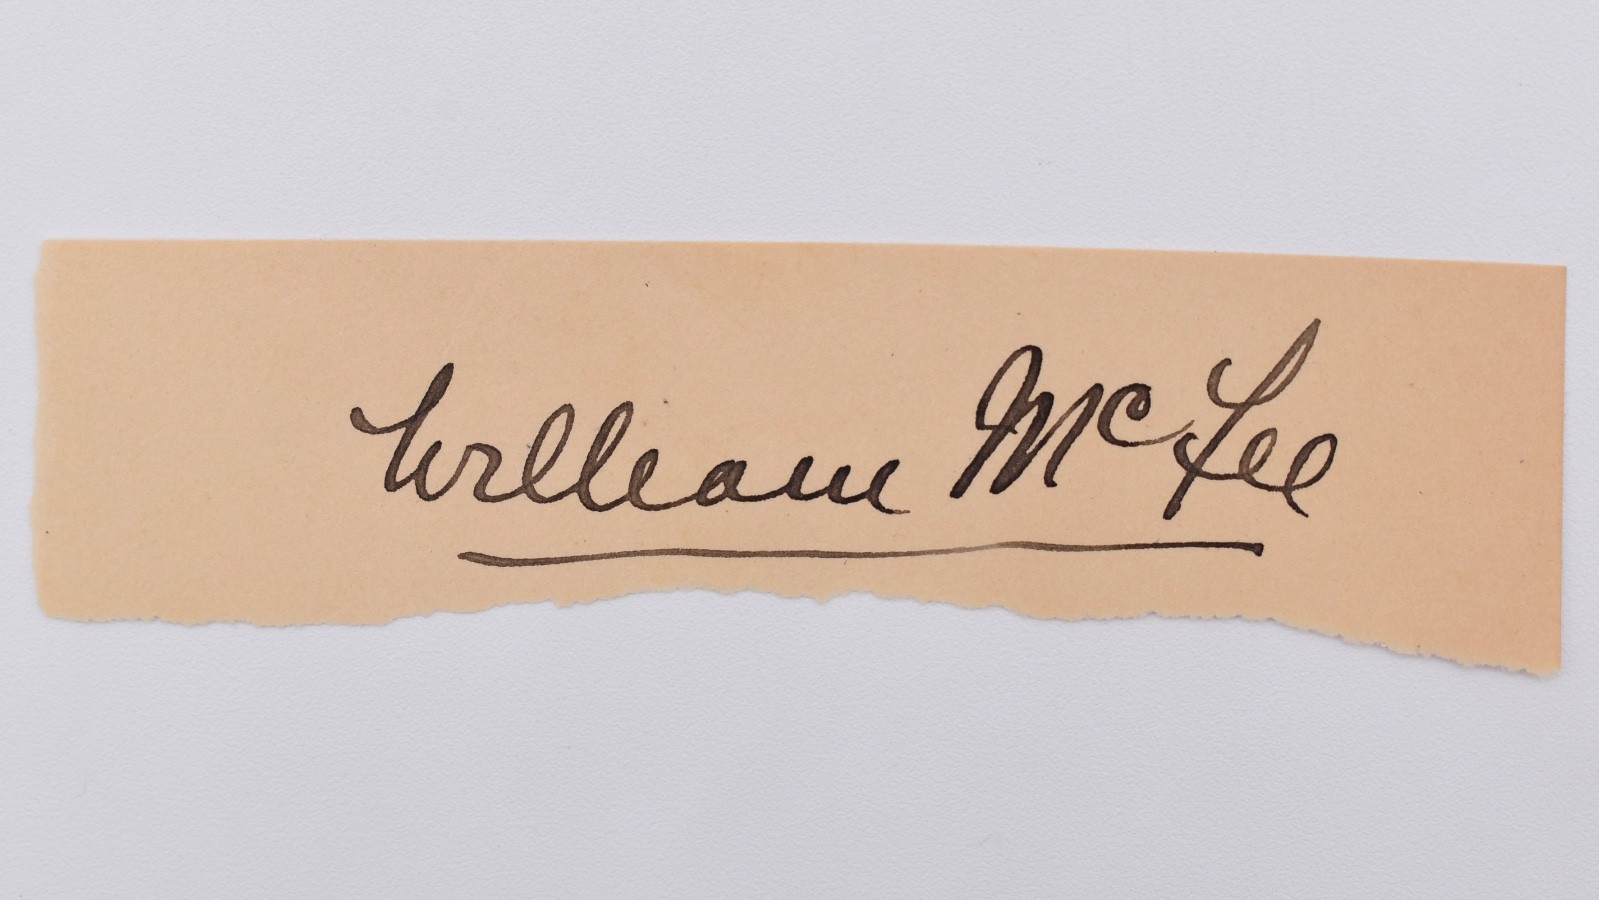 William McFee